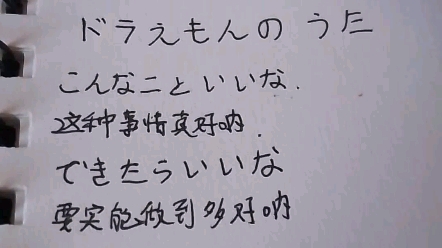 ドラえもんのうた
こんなこといいな.
这种事情真好呐.
できたらいいな
要实能做到多好呐